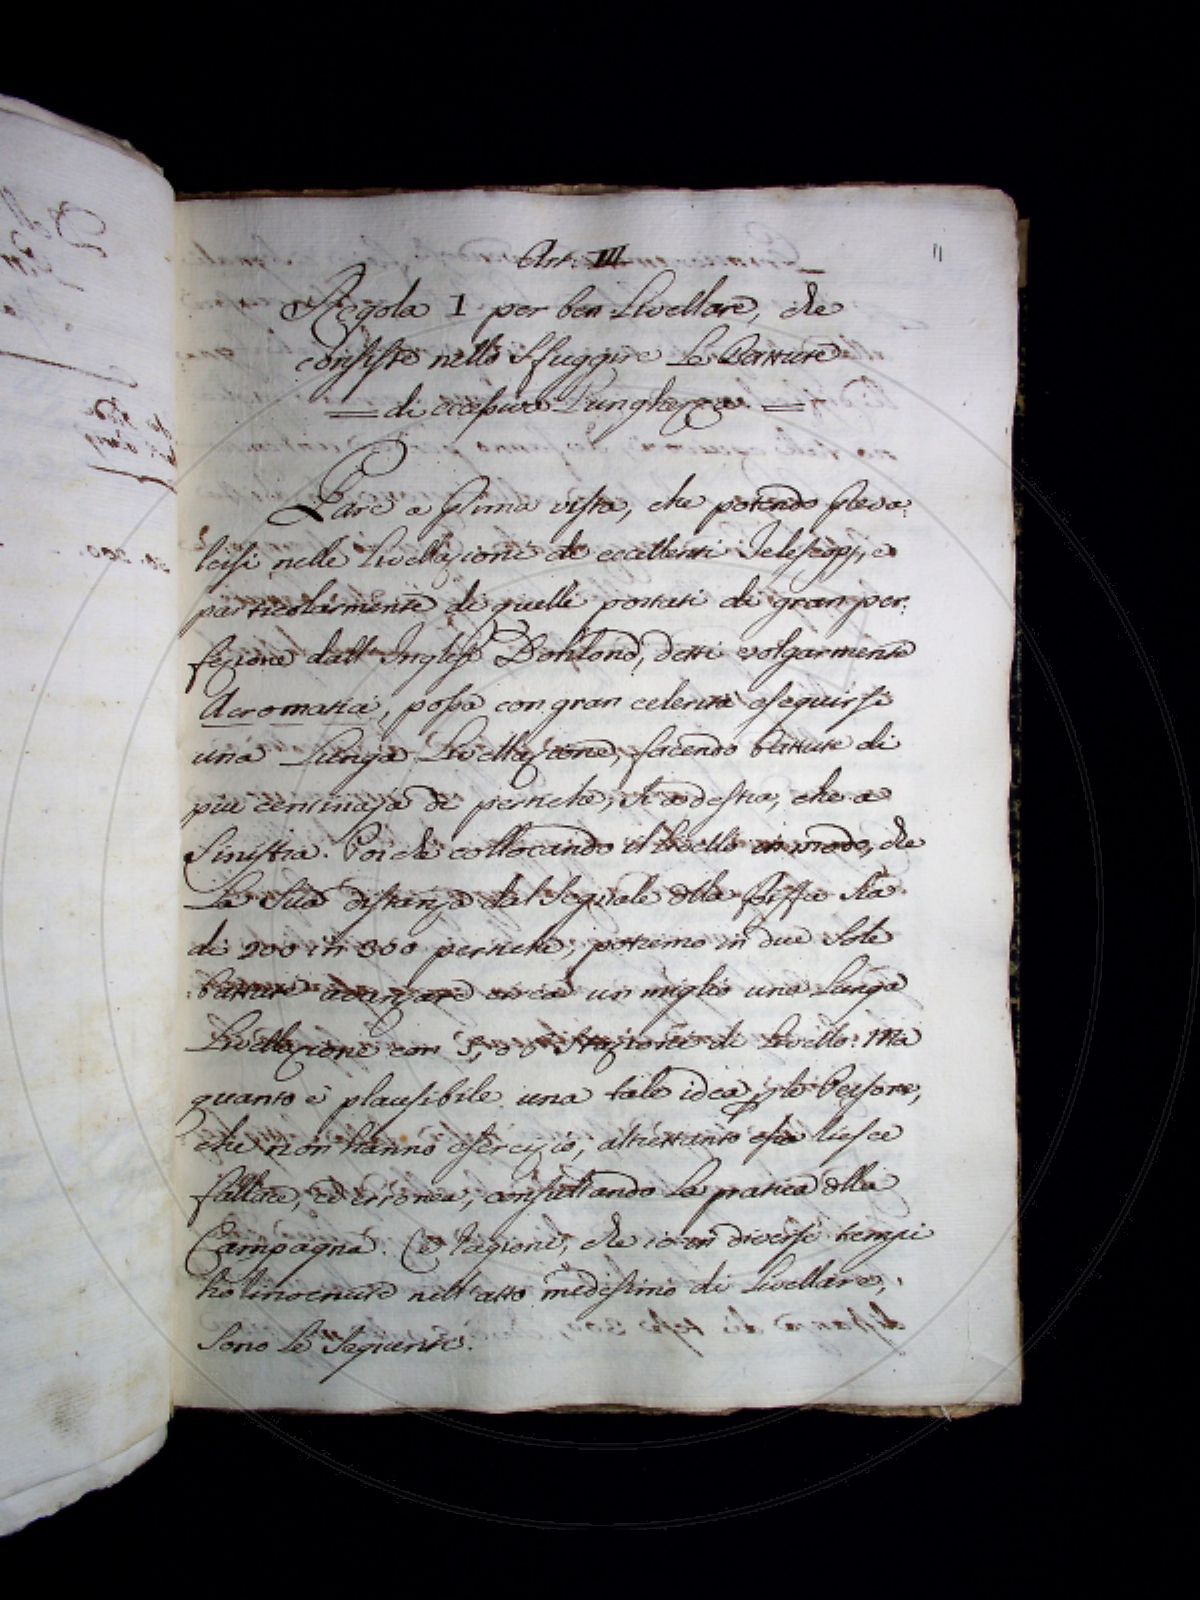 11
Art. III
Regola I per ben Livellare, che
consiste nello Sfuggire Le Battute
= di eccessiva Lunghezza. =
Pare a prima vista, che potendo preva:
lersi nelle Livellazioni de eccellenti Telescopj, e
particolarmente di quelli portati di gran per:
fezione dall'Inglese Dohlond, detti volgarmente
Acromatici, possa con gran celerità eseguirsi
una Lunga Livellazione, facendo battute di
più centinaja di pertiche, sì a destra, che a
Sinistra. Poi che collocando il livello in modo, che
La Sua distanza dal Segnale della Biffa Sia
di 200 in 300 pertiche, potremo in due Sole
battute avanzare circa un miglio una Lunga
Livellazione con 5, o 6 Stazioni di Livello. Ma
quanto è plausibile una tale idea p le Persone,
che non hanno esercizio, altrettanto essa riesce
fallace, ed erronea, consultando La pratica della
Campagna. Le ragioni, che io in diversi tempi
ho rinvenute nell'atto medesimo di Livellare,
Sono Le Seguenti.